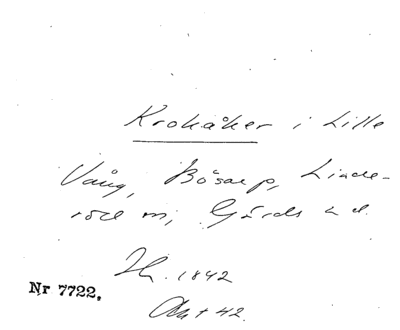 Krokåker i Lille
Vång, Bösarp, Linde-
röd sn, Gärds hd.
Zh. 1842
Nr 7722.
Akt 42.